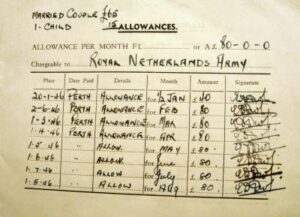 MARRIED COUPLE £65
1 - CHILD 15
ALLOWANCES.
ALLOWANCE PER MONTH Fl. or A£ 80-0-0
Chargeable to ROYAL NETHERLANDS ARMY
Place Date Paid Details Month Amount Signature
20-1-46 PERTH ALLOWANCE for ½ JAN £ 40
2-2-46 PERTH ALLOWANCE for FEB £ 80
1-3-46 PERTH ALLOWANCE for MAR £ 80
1-4-46 PERTH ALLOWANCE for APR £ 80
1-5-46 " ALLOW. for MAY £ 80.
1-6-46 " ALLOW. for June £ 80.
1-7-46 " ALLOW for July £ 80.
1-8-46 " ALLOW for Aug £ 80.